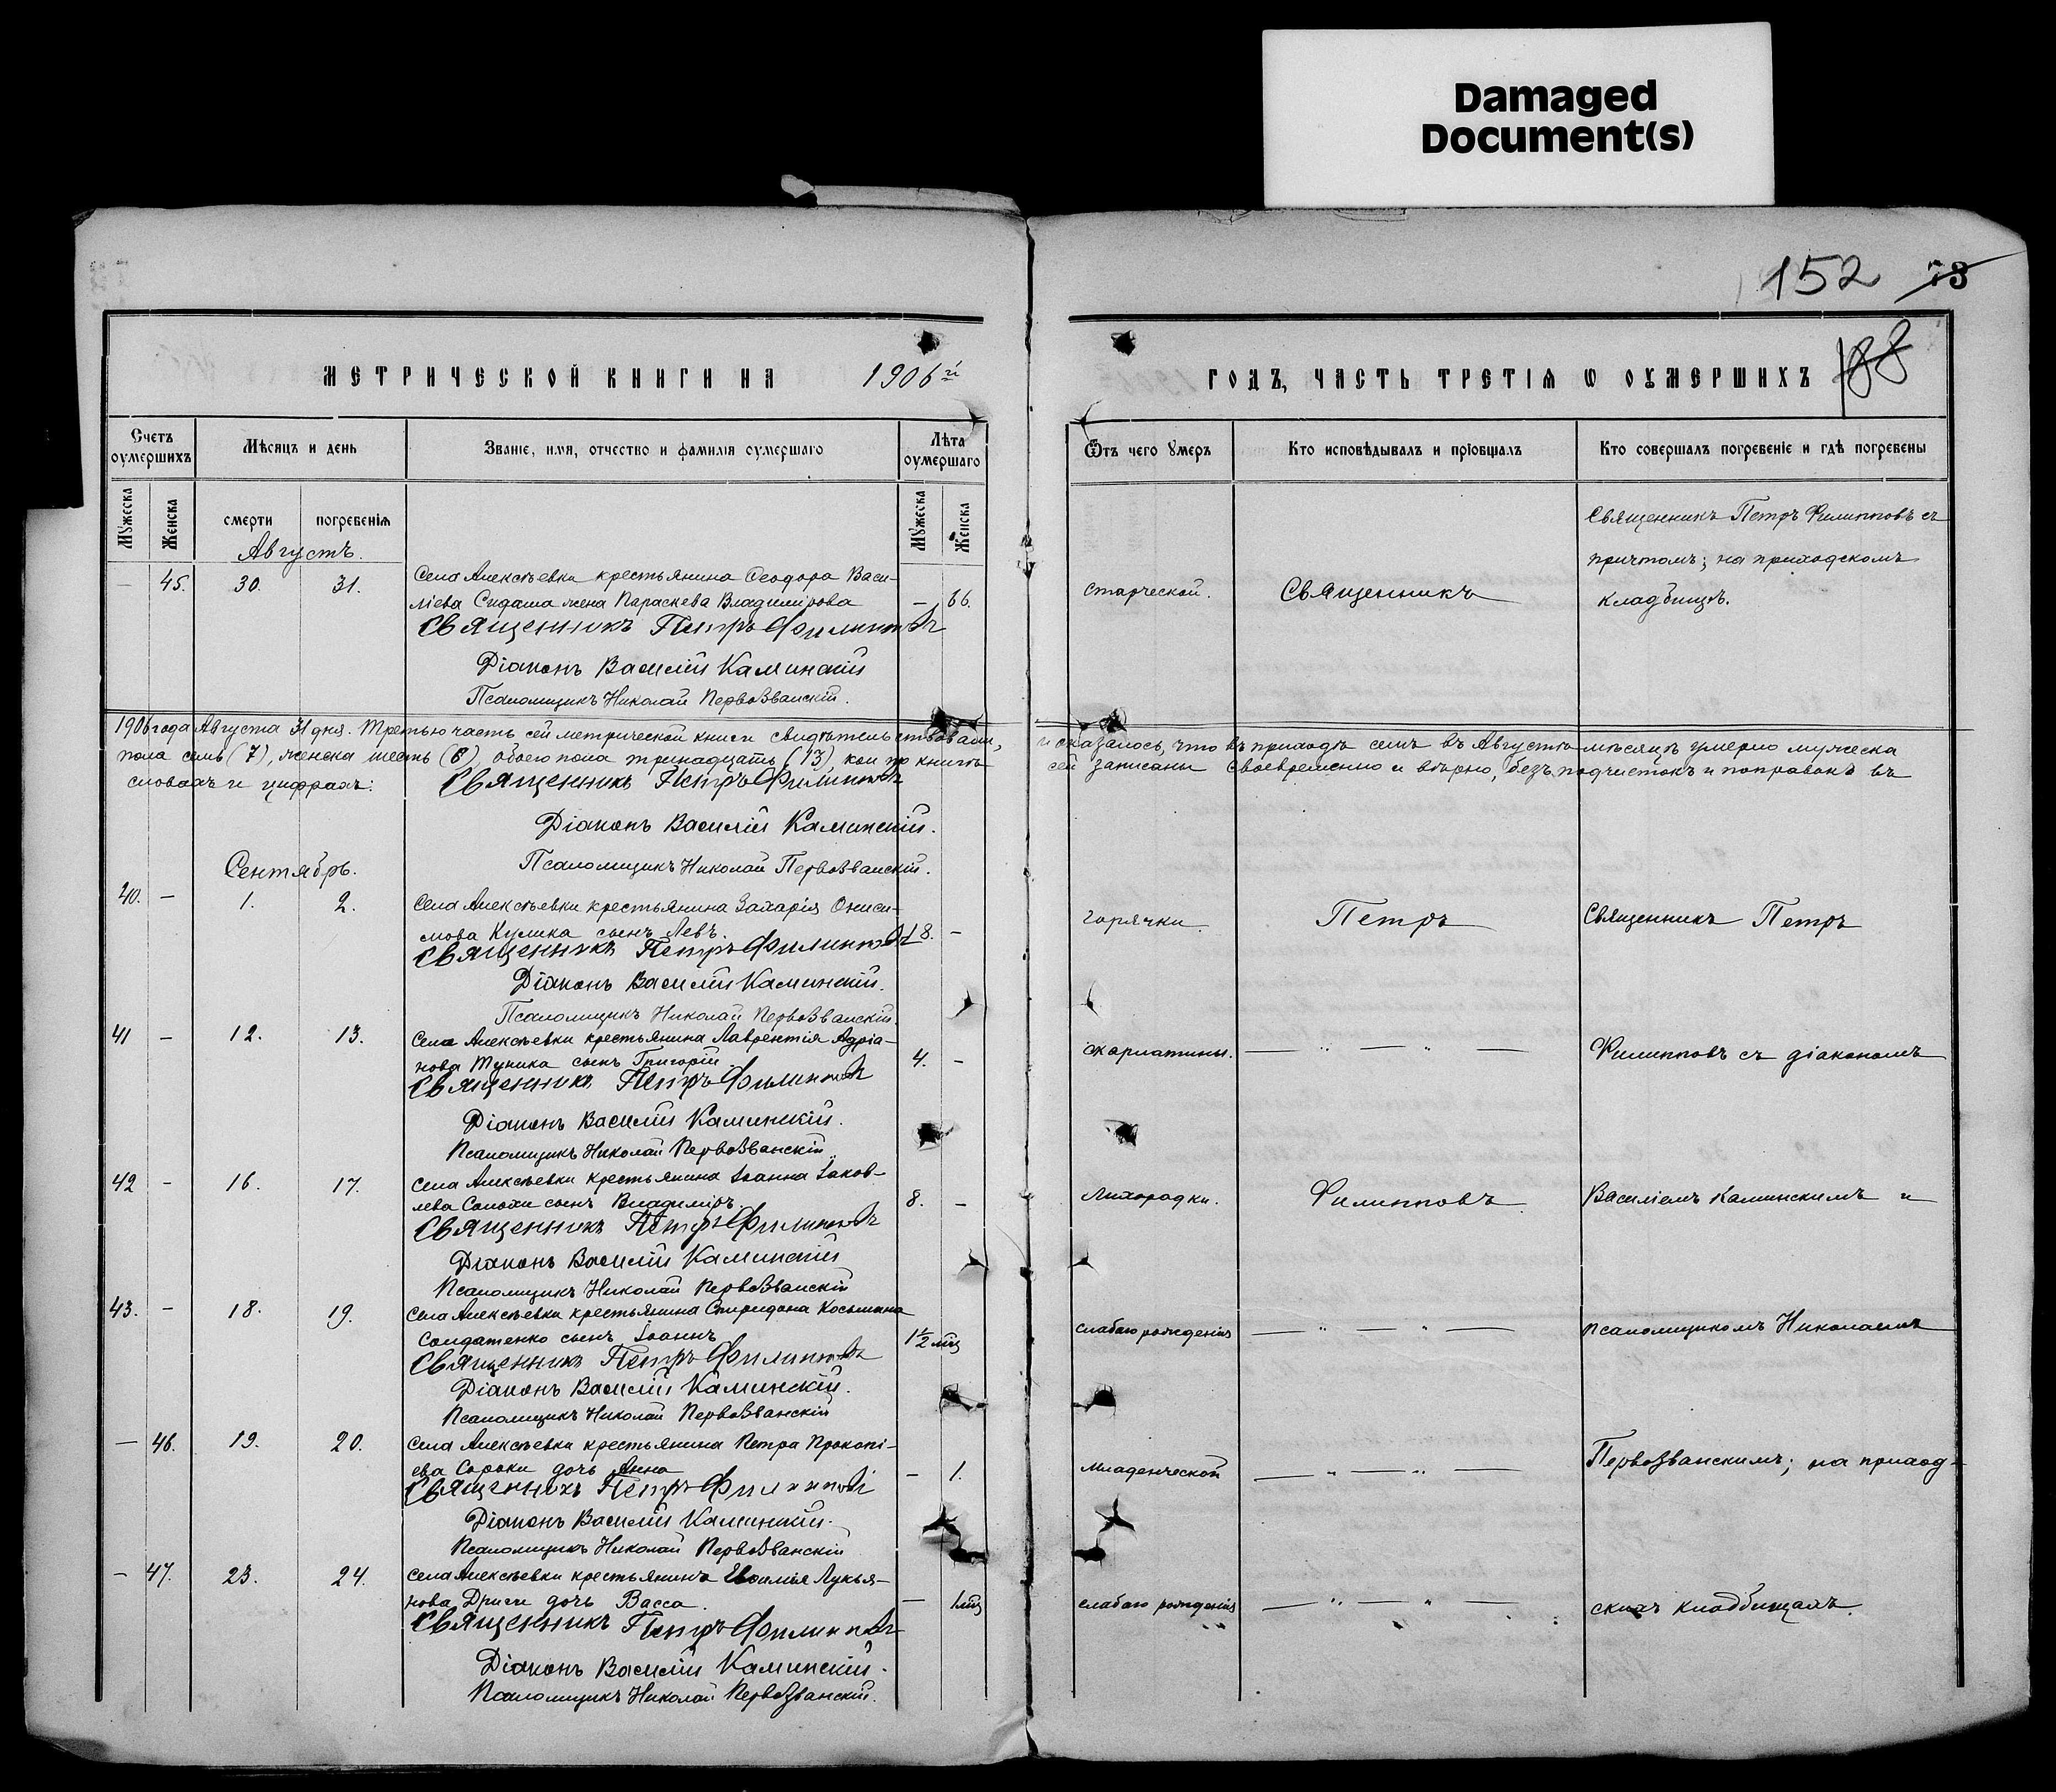 Damaged
Document(s)
152 73
188
МЕТРИЧЕСКОЙ КНИГИ НА 1906й
ГОДЪ, ЧАСТЬ ТРЕТІѦ Ѡ ОУМЕРШИХЪ
Счетъ оумершихъ
Мѣсяцъ и день
Званіе, имя, отчество и фамилія оумершаго
Лѣта оумершаго
Ѿтъ чего умеръ
Кто исповѣдывалъ и пріобщалъ
Кто совершалъ погребеніе и гдѣ погребены
Мужеска
Женска
смерти
погребенія
Мужеска
Женска
Августъ.
— 45. 30. 31.
Села Алексѣевки крестьянина Ѳеодора Васи-
ліева Сидаша жена Параскева Владимірова — 66.
старческой.
Священникъ
Священникъ Петръ Филипповъ съ
причтомъ; на приходскомъ
кладбищѣ.
Священникъ Петръ Филипповъ
Діаконъ Василій Каминскій
Псаломщикъ Николай Первозванскій.
1906 года Августа 31 дня. Третью часть сей метрической книги свидѣтельствовали, и оказалось, что въ приходѣ семъ въ Августѣ мѣсяцѣ умерло мужеска
пола семь (7), женска шесть (6), обоего пола тринадцать (13), кои по книгѣ сей записаны своевременно и вѣрно, безъ подчистокъ и поправокъ въ
словахъ и цифрахъ:
Священникъ Петръ Филипповъ
Діаконъ Василій Каминскій.
Псаломщикъ Николай Первозванскій.
Сентябрь.
40. — 1. 2.
Села Алексѣевки крестьянина Захарія Ониси-
мова Кулика сынъ Левъ. 18. —
горячки.
Петръ
Священникъ Петръ
Священникъ Петръ Филипповъ
Діаконъ Василій Каминскій.
Псаломщикъ Николай Первозванскій.
41 — 12. 13.
Села Алексѣевки крестьянина Лаврентія Адріа-
нова Тупика сынъ Григорій 4. —
скарлатины.
— " — " —
Филипповъ съ діакономъ
Священникъ Петръ Филипповъ
Діаконъ Василій Каминскій.
Псаломщикъ Николай Первозванскій.
42 — 16. 17.
Села Алексѣевки крестьянина Іоанна Іаков-
лева Солохи сынъ Владиміръ. 8. —
Лихорадки.
Филипповъ
Василіемъ Каминскимъ и
Священникъ Петръ Филипповъ
Діаконъ Василій Каминскій
Псаломщикъ Николай Первозванскій
43. — 18. 19.
Села Алексѣевки крестьянина Спиридона Косьмина
Солдатенко сынъ Іоаннъ 1½ мѣц
слабаго рожденія
— " — " —
псаломщикомъ Николаемъ
Священникъ Петръ Филипповъ
Діаконъ Василій Каминскій.
Псаломщикъ Николай Первозванскій
— 46. 19. 20.
Села Алексѣевки крестьянина Петра Прокопі-
ева Сороки дочь Анна — 1.
младенческой
— " — " —
Первозванскимъ; на приход-
Священникъ Петръ Филипповъ
Діаконъ Василій Каминскій.
Псаломщикъ Николай Первозванскій
— 47. 23. 24.
Села Алексѣевки крестьянина Евѳимія Лукья-
нова дочь Васса. — 1 мѣц
слабаго рожденія
— " — " —
скихъ кладбищахъ.
Священникъ Петръ Филипповъ
Діаконъ Василій Каминскій.
Псаломщикъ Николай Первозванскій.